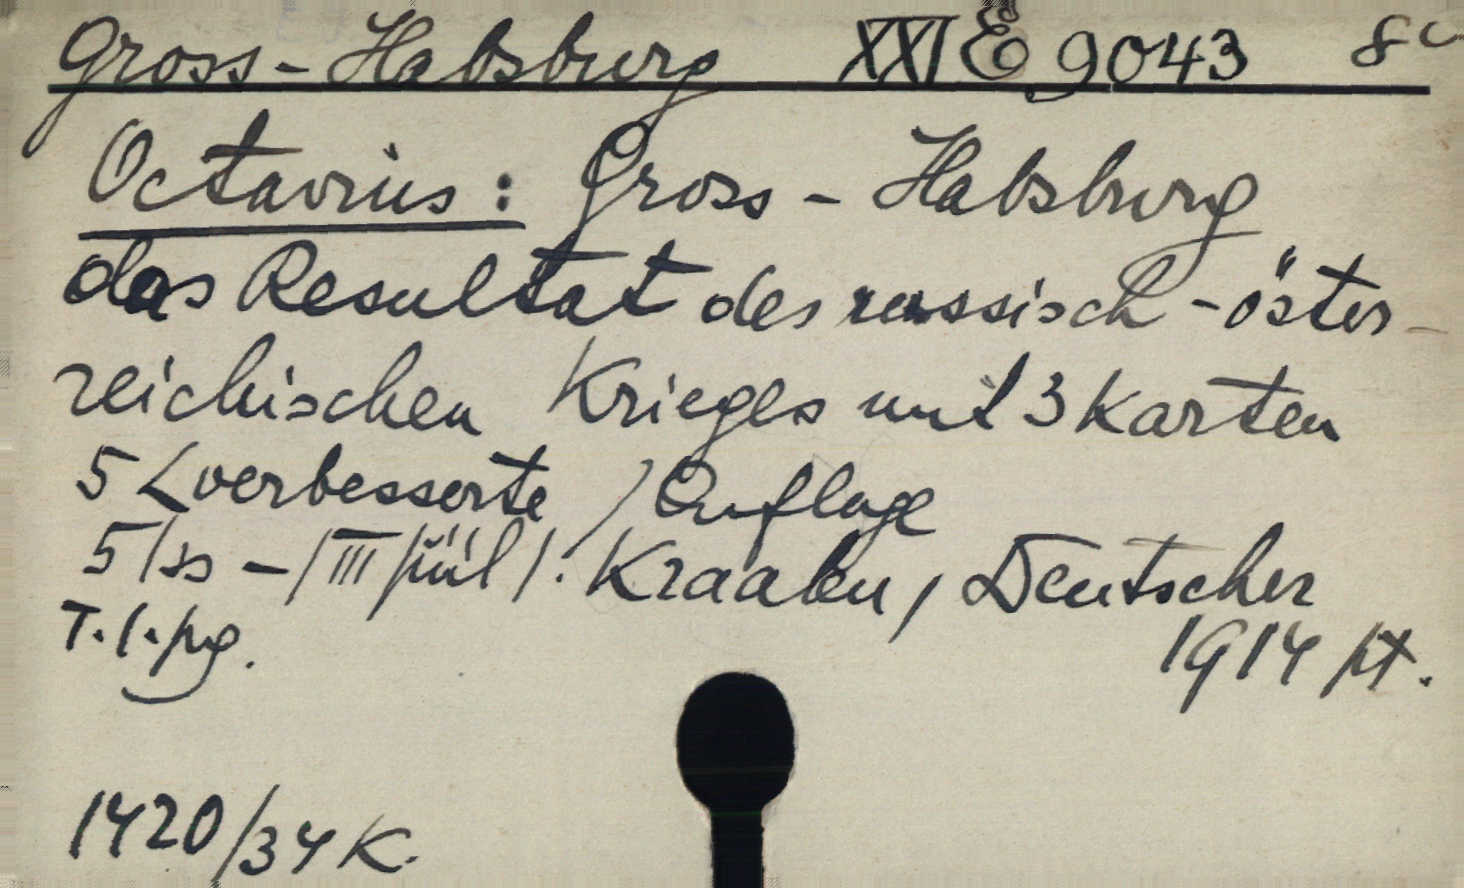 Gross-Habsburg XXI E 9043 8°
Octavius: Gross-Habsburg
das Resultat des russisch-öster-
reichischen Krieges mit 3 Karten
5 verbesserte / Auflage
5 / ss - / III / . Kraaben, Deutscher
1914
1420/34 K.